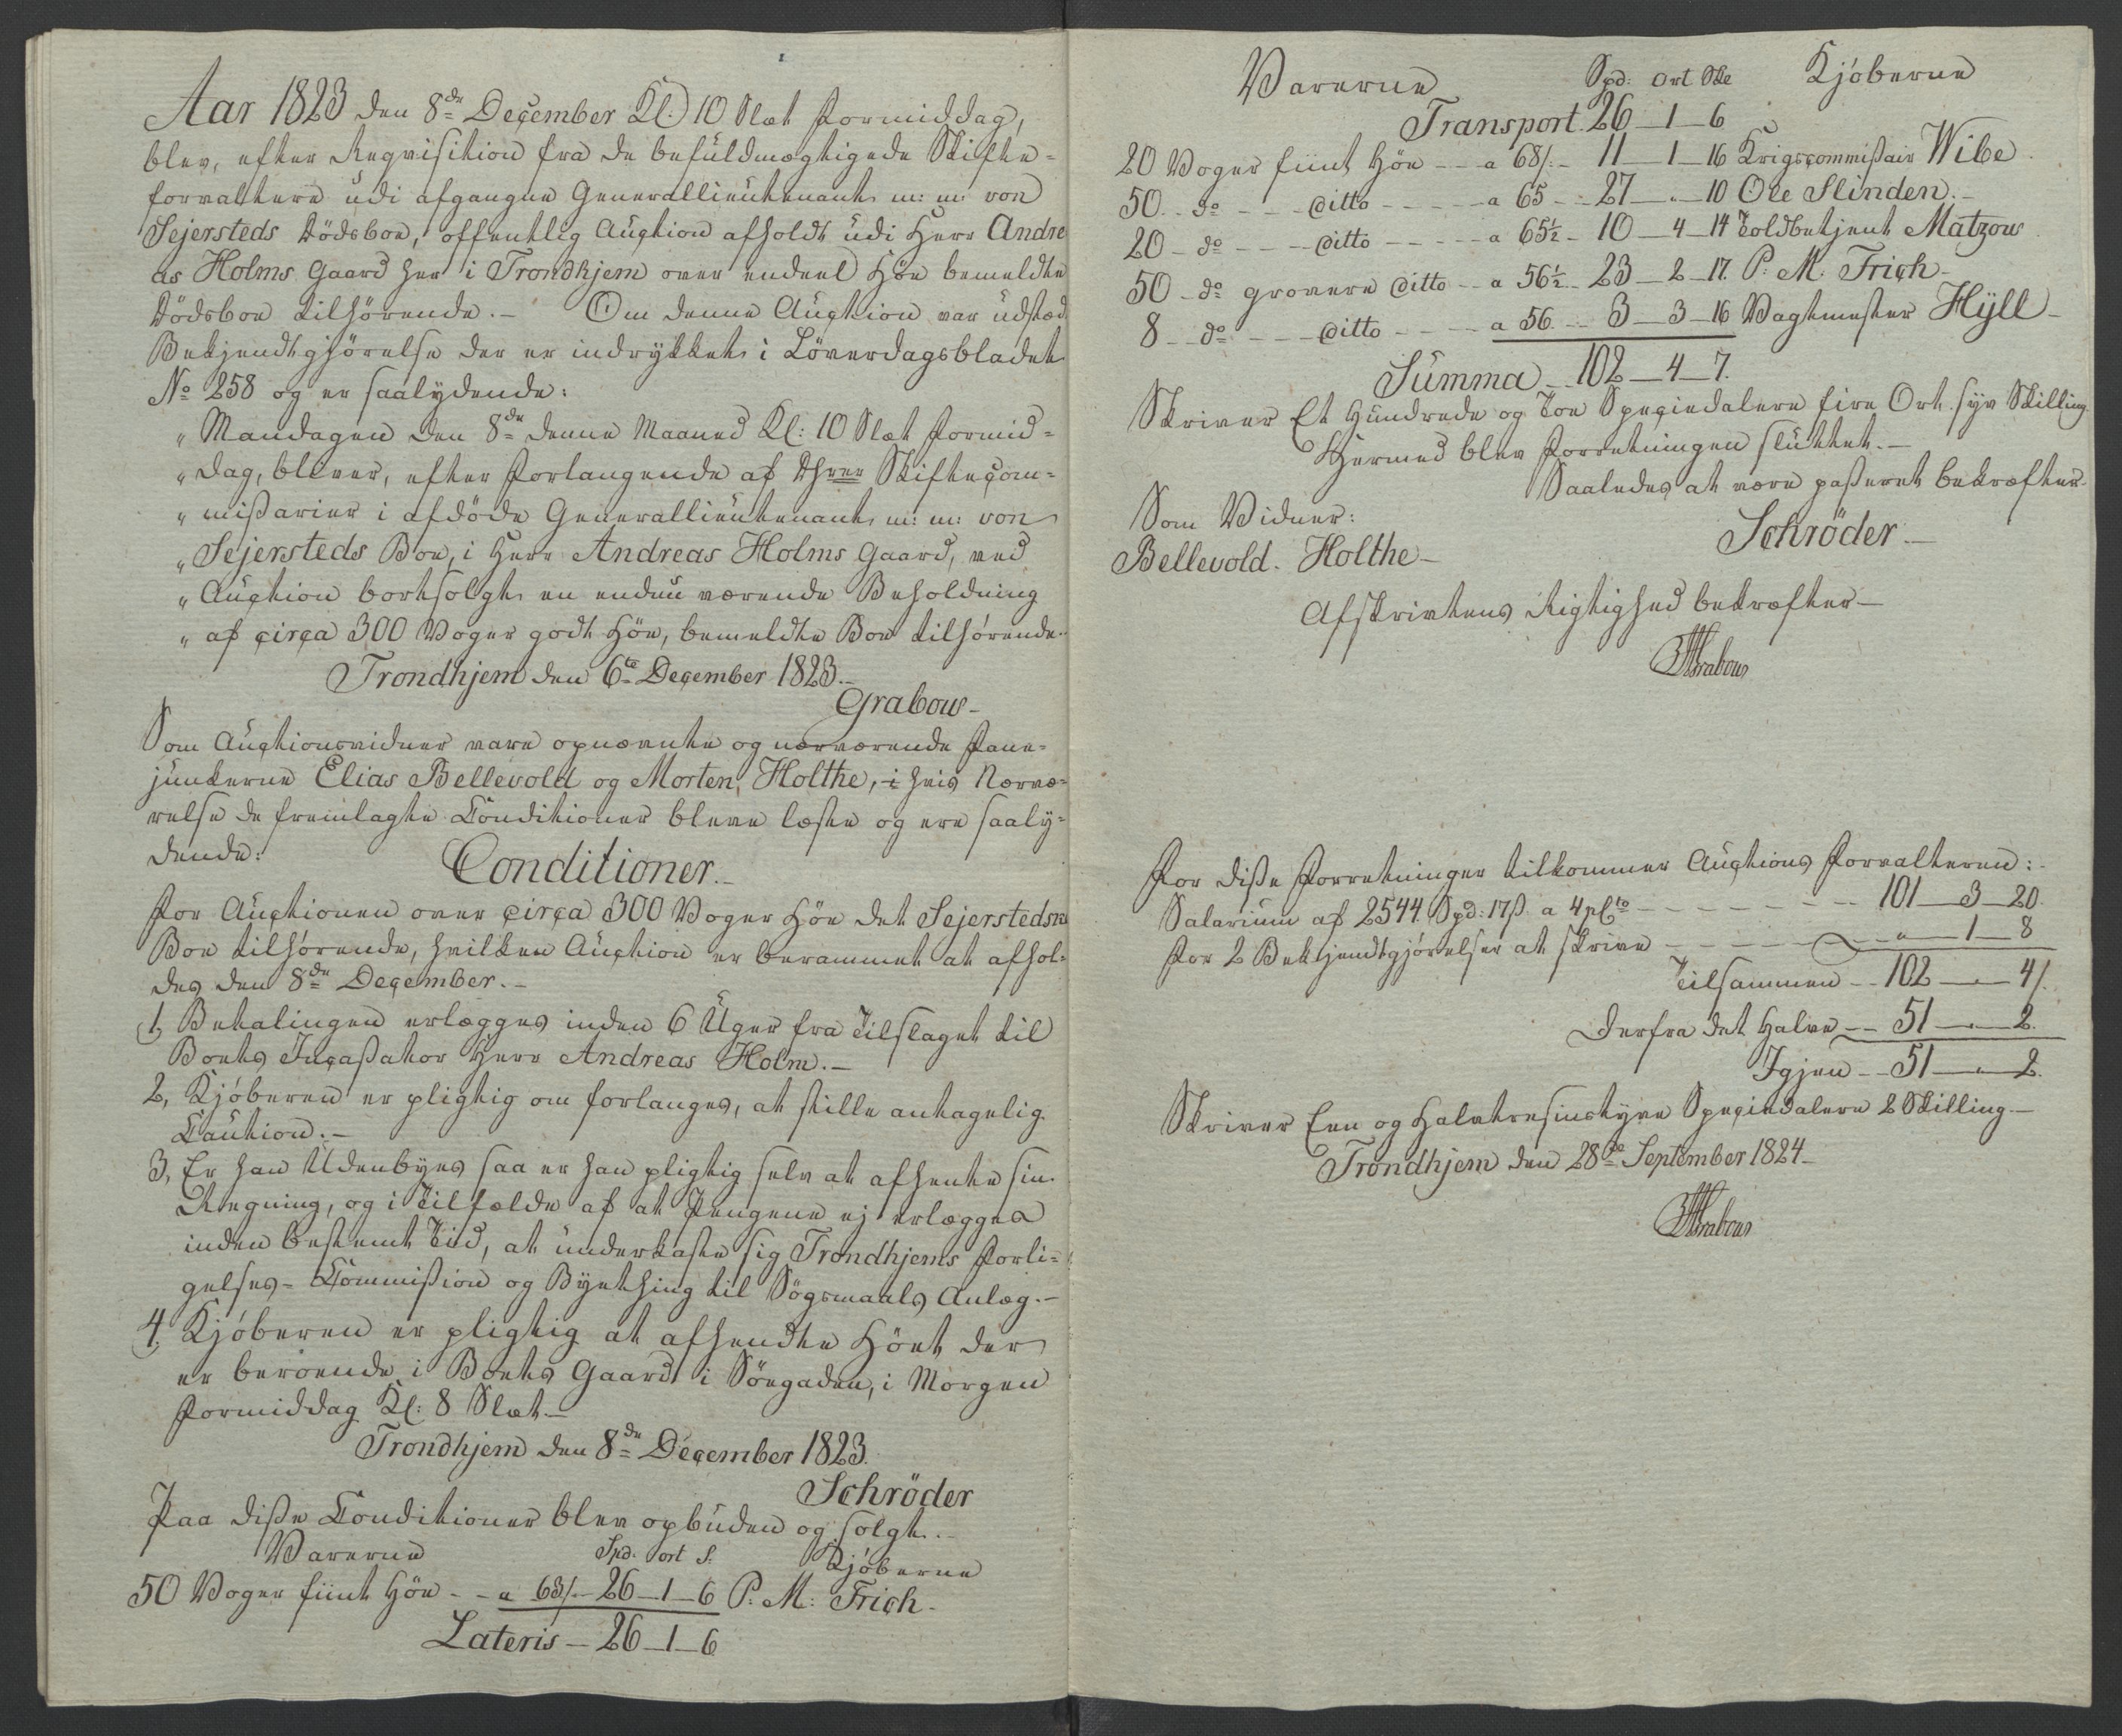 Aar 1823 den 8de December Kl. 10 Slæt Formiddag,
blev, efter Reqvisition fra de befuldmægtigede Skifte-
forvaltere udi afgangne Generallieutenant m: m: von
Sejersteds Dödsboe, offentlig Auction afholdt udi Herr Andre
as Holms Gaard her i Trondhjem over endeel Höe bemeldte
Dödsboe tilhörende.- Om denne Auction var udstæd
Bekjendtgjörelse der er indrykket i Löverdagsbladet
No 258 og er saalydende:
" Mandagen den 8de denne Maaned Kl: 10 Slæt Formid-
" dag, bliver, efter Forlangende af Dhrrr Skiftecom-
" missarier i afdöde Generallieutenant m: m: von
" Sejersteds Boe, i Herr Andreas Holms Gaard, ved
" Auction bortsolgt en endnu værende Beholdning
" af circa 300 Voger godt Höe, bemeldte Boe tilhörende.
Trondhjem den 6te December 1823.-
Grabow-
Som Auctionsvidner vare opnævnte og nærværende Fane-
junkerne Elias Bellevold og Morten Holthe, i hvis Nærvæ-
relse de fremlagte Conditioner bleve læste og ere saaly-
dende:
Conditioner.-
For Auctionen over circa 300 Voger Höe det Sejerstedske
Boe tilhörende, hvilken Auction er berammet at afhol-
des den 8de December.-
1, Betalingen erlægges inden 6 Uger fra Tilslaget til
Boets Incassator Herr Andreas Holm.-
2, Kjöberen er pligtig om forlanges, at stille antagelig
Caution.-
3, Er han Udenbyes saa er han pligtig selv at afhente sin
Regning, og i Tilfælde af at Pengene ej erlægges
inden bestemt Tiid, at underkaste sig Trondhjems Forli-
gelses-Commission og Byething til Sögsmaals Anlæg.-
4, Kjöberen er pligtig at afhendte Höet der
er beroende i Boets Gaard i Söegaden, i Morgen
Formiddag Kl: 8 Slæt.-
Trondhjem den 8de December 1823.
Schröder
Paa disse Conditioner blev opbuden og solgt.-
Varerne Spd. ort S. Kjöberne
50 Voger fiint Höe - - a 63/- 26-1-6 P. M: Frich-
Lateris - 26-1-6
Varerne Spd: ort Ske Kjöberne
Transport. 26-1-6
20 Voger fiint Höe - - a 68/- 11-1-16 Krigscommissair Wibe
50 - do - - - ditto - - - - a 65 - 27-"-10 Ole Slinden.-
20 - do - - - ditto - - - - a 65½ - 10-4-14 Toldbetjent Matzow
50 - do grovere ditto - - a 56½ - 23-2-17. P: M. Frich-
8 - do - - - ditto - - - - a 56 - 3-3-16 Vagtmester Hÿll-
Summa - 102-4-7.
Skriver Et Hundrede og Toe Speciedalere fire Ort syv Skilling.
Hermed blev Forretningen sluttet.-
Saaledes at være passeret bekræfter
Som Vidner: Schröder.-
Bellevold. Holthe-
Afskrivtens Rigtighed bekræfter-
Grabow
For disse Forretninger tilkommer Auctions Forvalteren:-
Salarium af 2544 Spd: 17 ß. a 4 pCto - - - - 101-3-20.
For 2 Bekjendtgjörelser at skrive - - - - "-1-8
Tilsammen - - 102-"-4/.
Derfra det Halve - - 51-"-2.
Igjen - - 51-"-2.
Skriver Een og Halvtresindstyve Speciedalere 2 Skilling-
Trondhjem den 28de September 1824-
Grabow